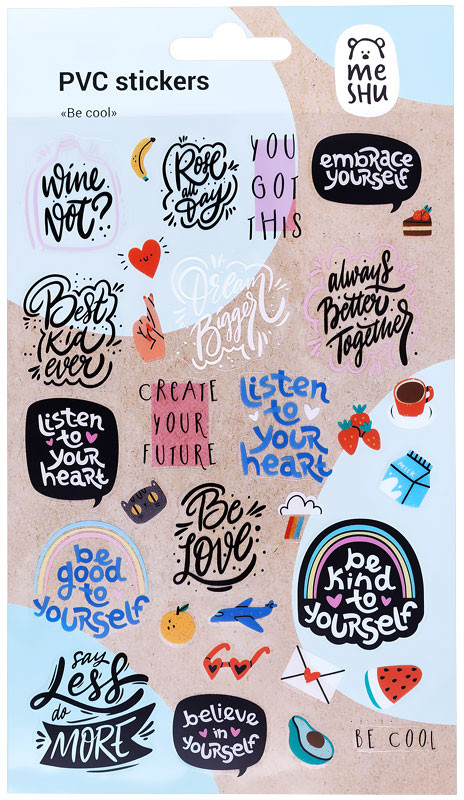 PVC stickers
«Be cool»
me
SHU
wine
Not?
Rosé
all
Day
YOU
GOT
THIS
embrace
yourself
Best
kid
ever
Dream
Bigger
always
Better
Together.
CREATE
YOUR
FUTURE
listen
to
your
heart
listen
to
your
heart
MILK
Be
Love.
be
good
to
yourself
be
kind
to
yourself
say
Less
do
MORE
believe
in
yourself
BE COOL